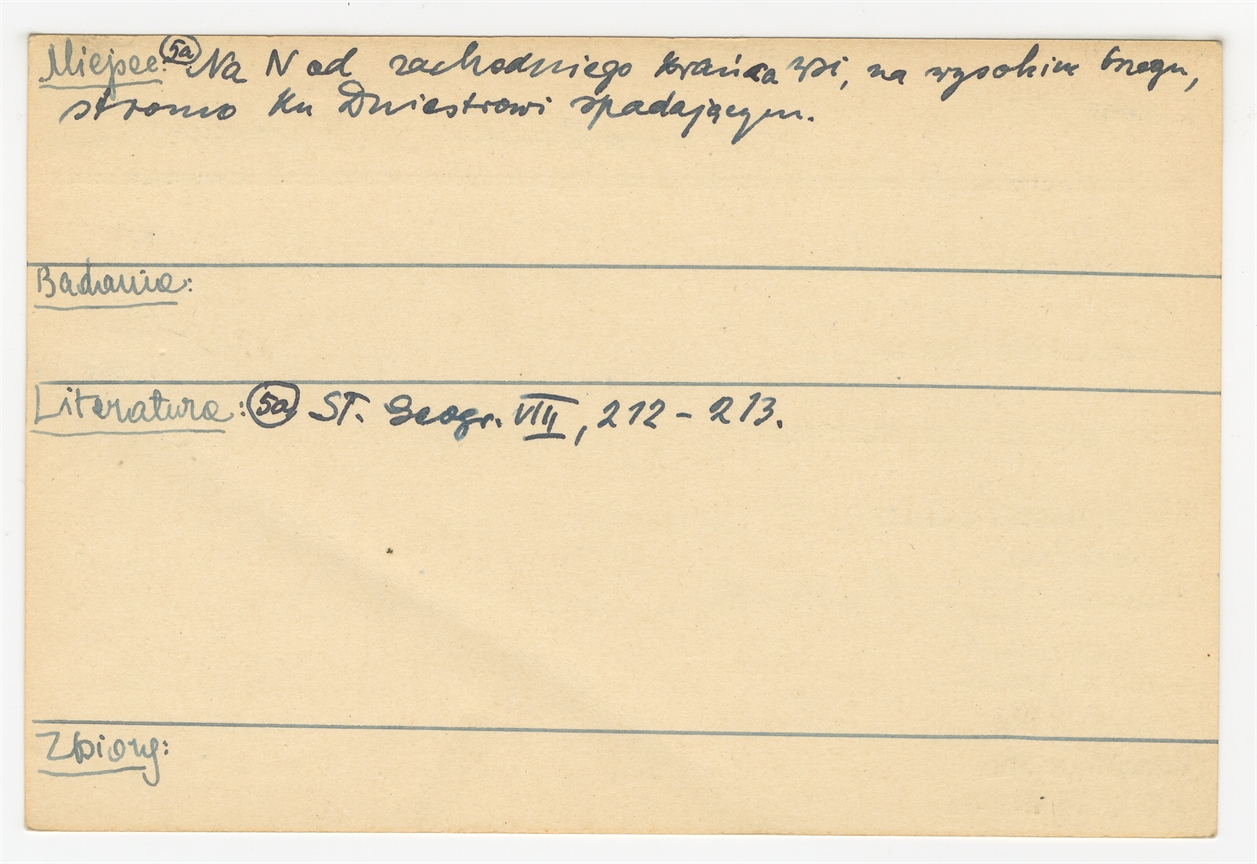 Miejsce: (5a) Na N od zachodniego krańca wsi, na wysokim brzegu,
stromo ku Dniestrowi spadającym.
Badania:
Literatura: (5a) ST. Geogr. VIII, 212 - 213.
Zbiory: